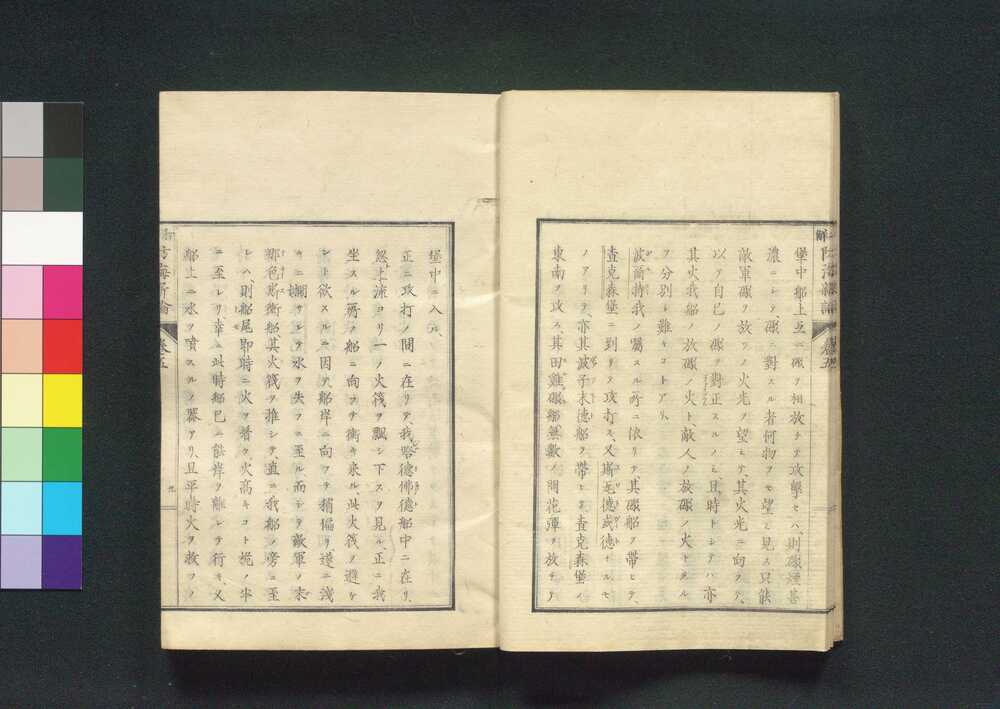 堡中船上互ニ礮ヲ相放チテ攻撃セハ、則礮煙甚
濃ニシテ礮ニ對スル者何物ヲモ望ミ見ス只能
敵軍礮ヲ放ツノ火光ヲ望ミテ、其火光ニ向ヲテ、
以テ自己ノ礮ヲ對正スルノミ且時トシテハ亦
其火我船ノ放礮ノ火ト、敵人ノ放礮ノ火トタル
ヲ分別シ難キコトアリ、
波爾持我ノ屬スル所ニ依リテ其礮船ヲ帶ヒテ、
査克森堡ニ到リテ攻打ス、又斯瓦德或德ナルモ
ノアリテ、亦其滅子末德船ヲ帶ヒテ査克森堡ノ
東南ヲ攻ス、其田雞礮船無數ノ開花彈ヲ放チテ
堡中ニ入ル、
正ニ攻打ノ間ニ在リテ、我略德佛德船中ニ在リ、
忽上流ヨリ一ノ火筏ヲ飄シ下スヲ見ル、正ニ我
坐スル所ノ船ニ向ヲテ衝キ來ル、此火筏ヲ避ケ
ント欲スルニ因テ船岸ニ向ヲテ稍偏リ遂ニ淺
キニ擱サレテ水ヲ失フニ至ル而シテ敵軍ノ末
耶色斯衛船其火筏ヲ推シテ、直ニ我船ノ旁ニ至
レハ、則船尾即時ニ火ヲ著ク、火高キコト桅ノ半
ニ至レリ幸ニ此時船已ニ餘岸ヲ離レテ行キ、又
船上ニ水ヲ噴スルノ器アリ、且平時火ヲ救フノ
卷五
九